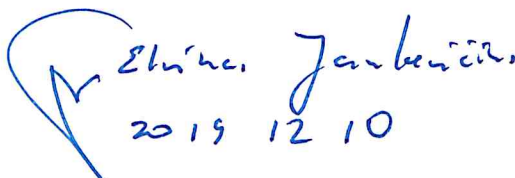 Elvinas Jankevičius
2019 12 10